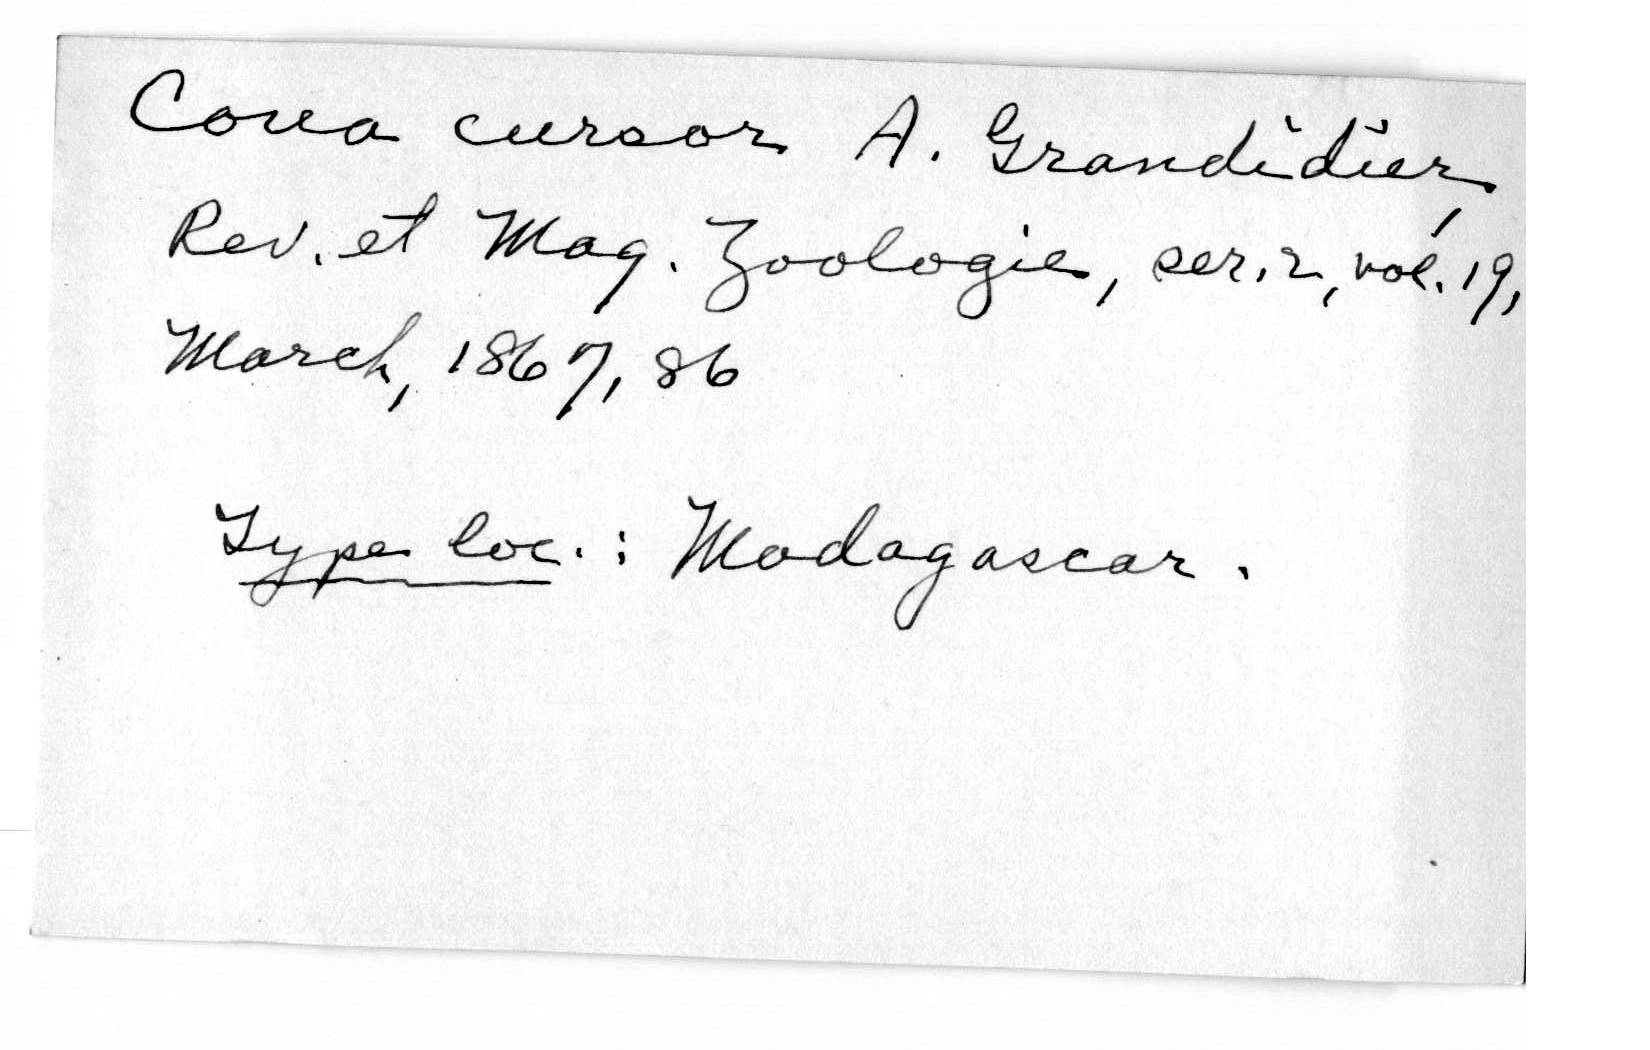 Coua cursor A. Grandidier,
Rev. et Mag. Zoologie, ser. 2, vol. 19,
March, 1867, 86
Type loc.: Madagascar.